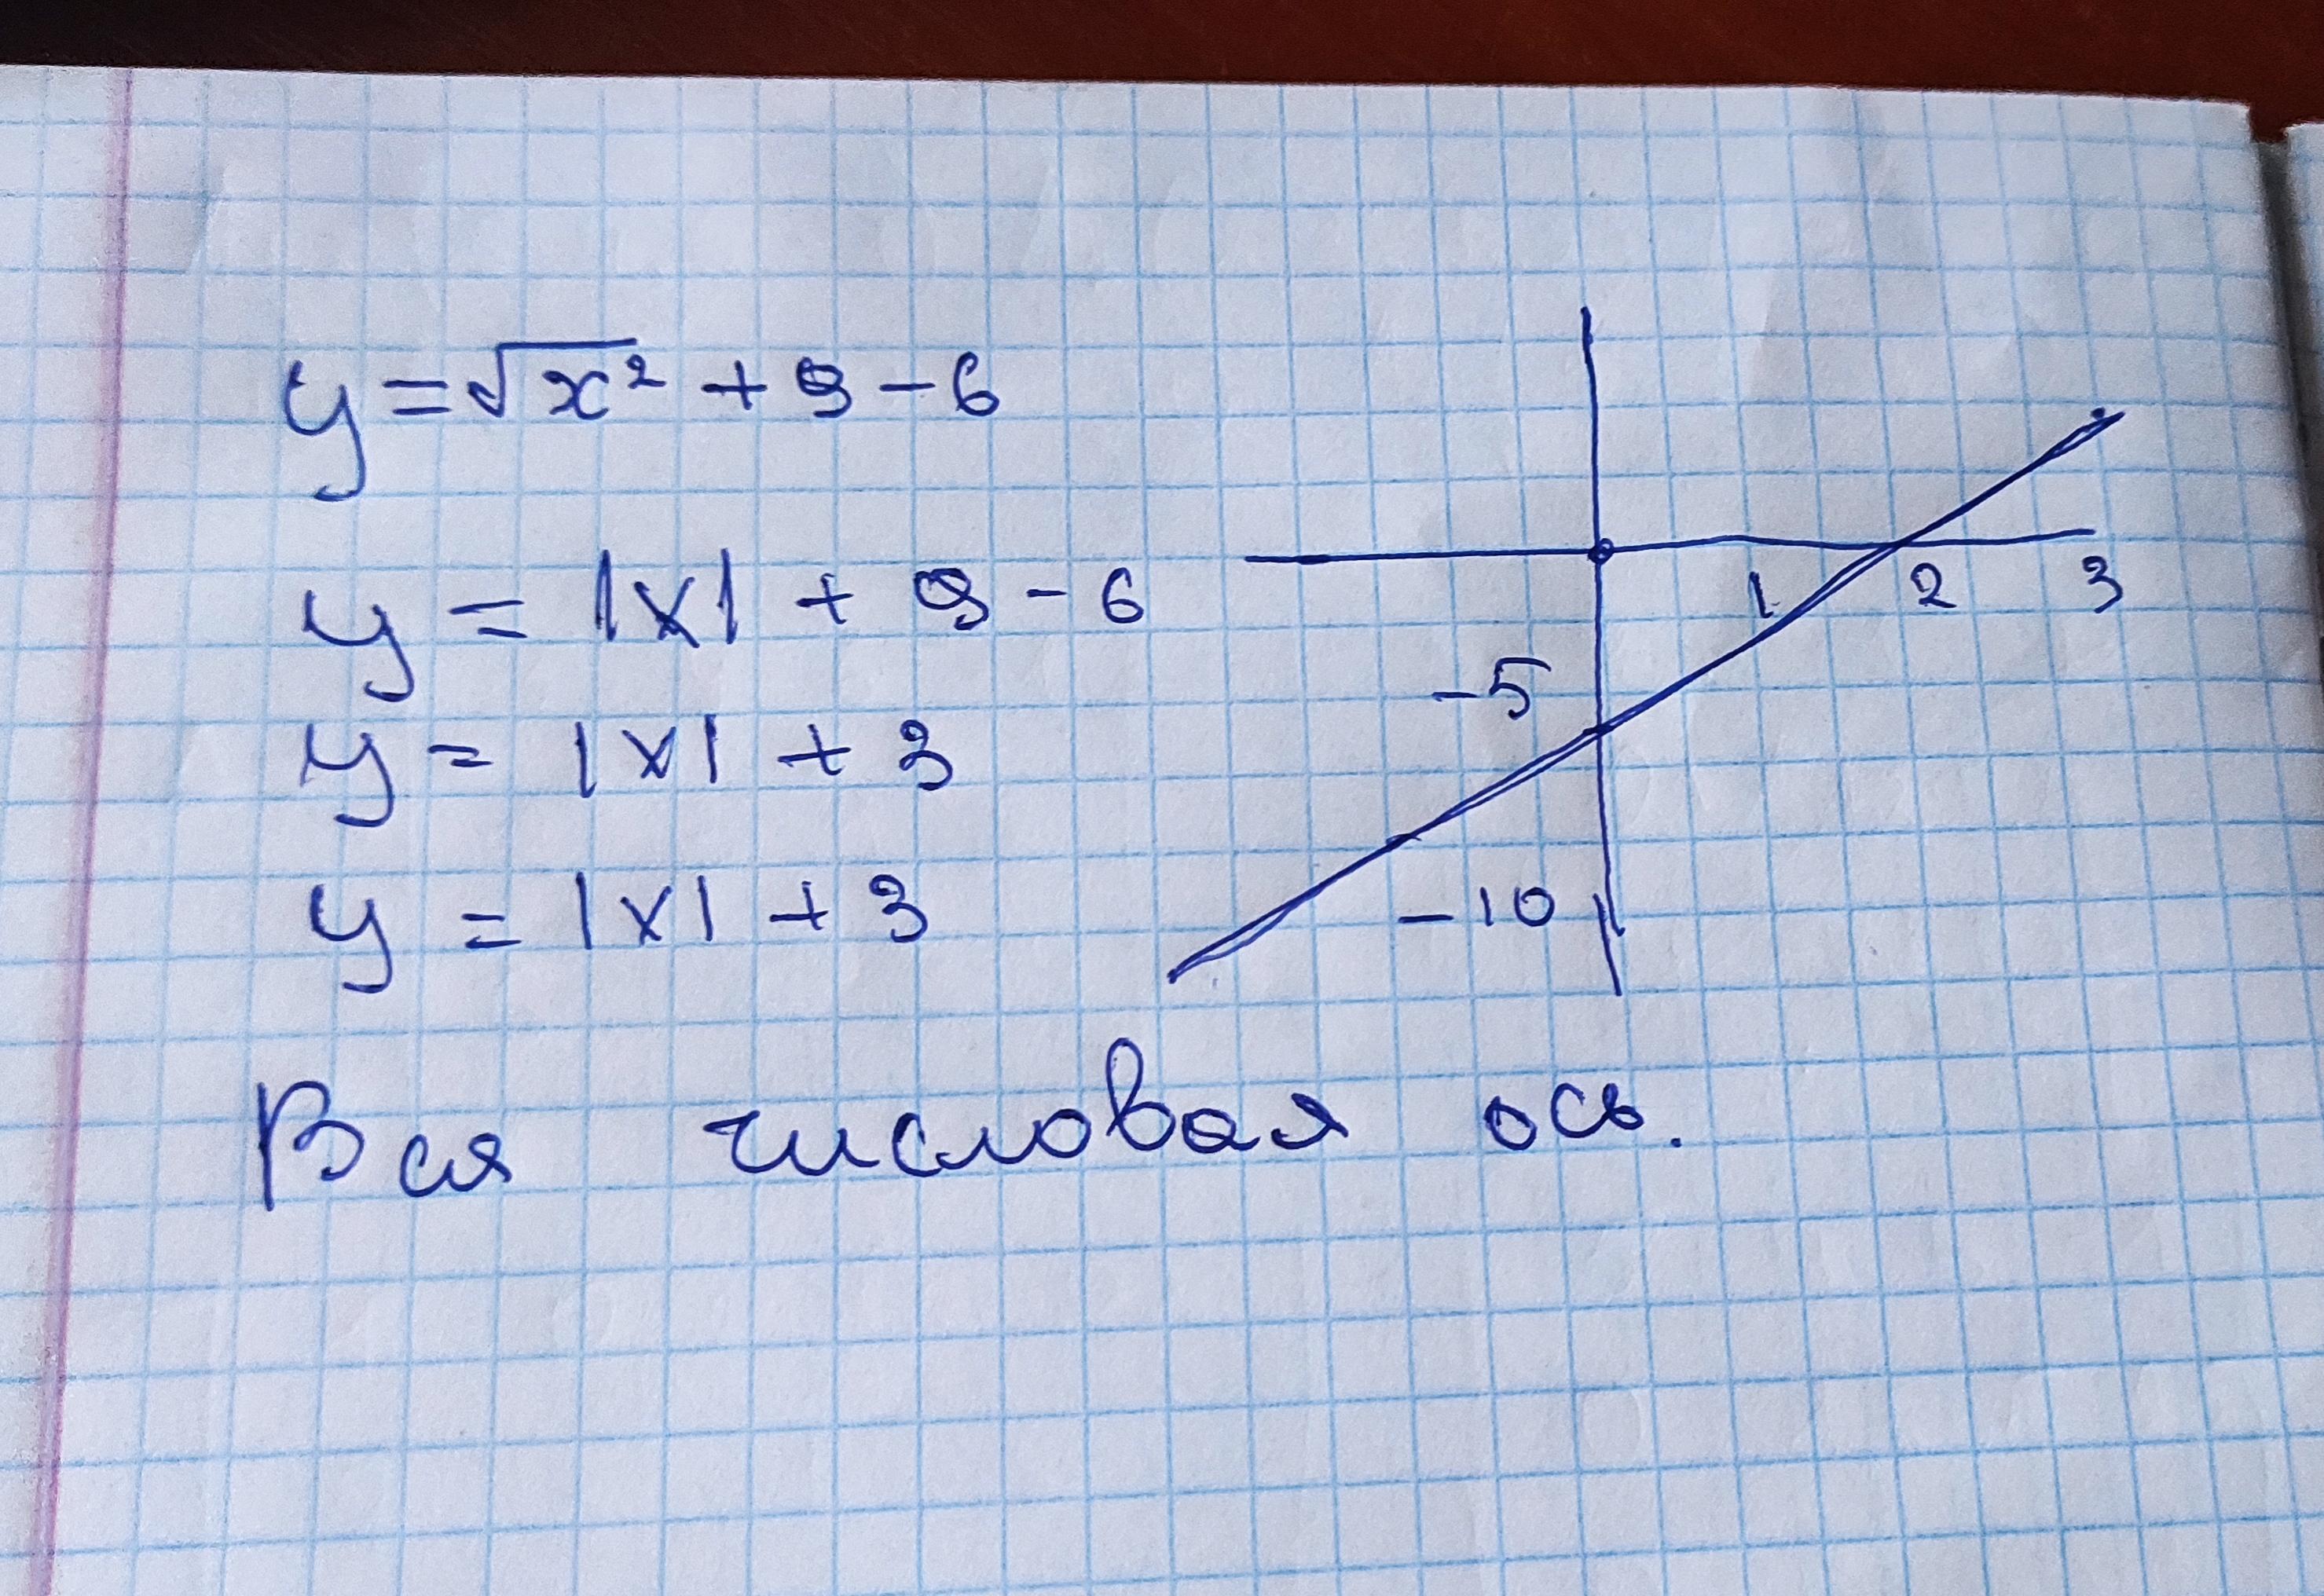 y = √x² + 9 - 6
y = |x| + 9 - 6
y = |x| + 3
y = |x| + 3
1 2 3
-5
-10
Вся числовая ось.